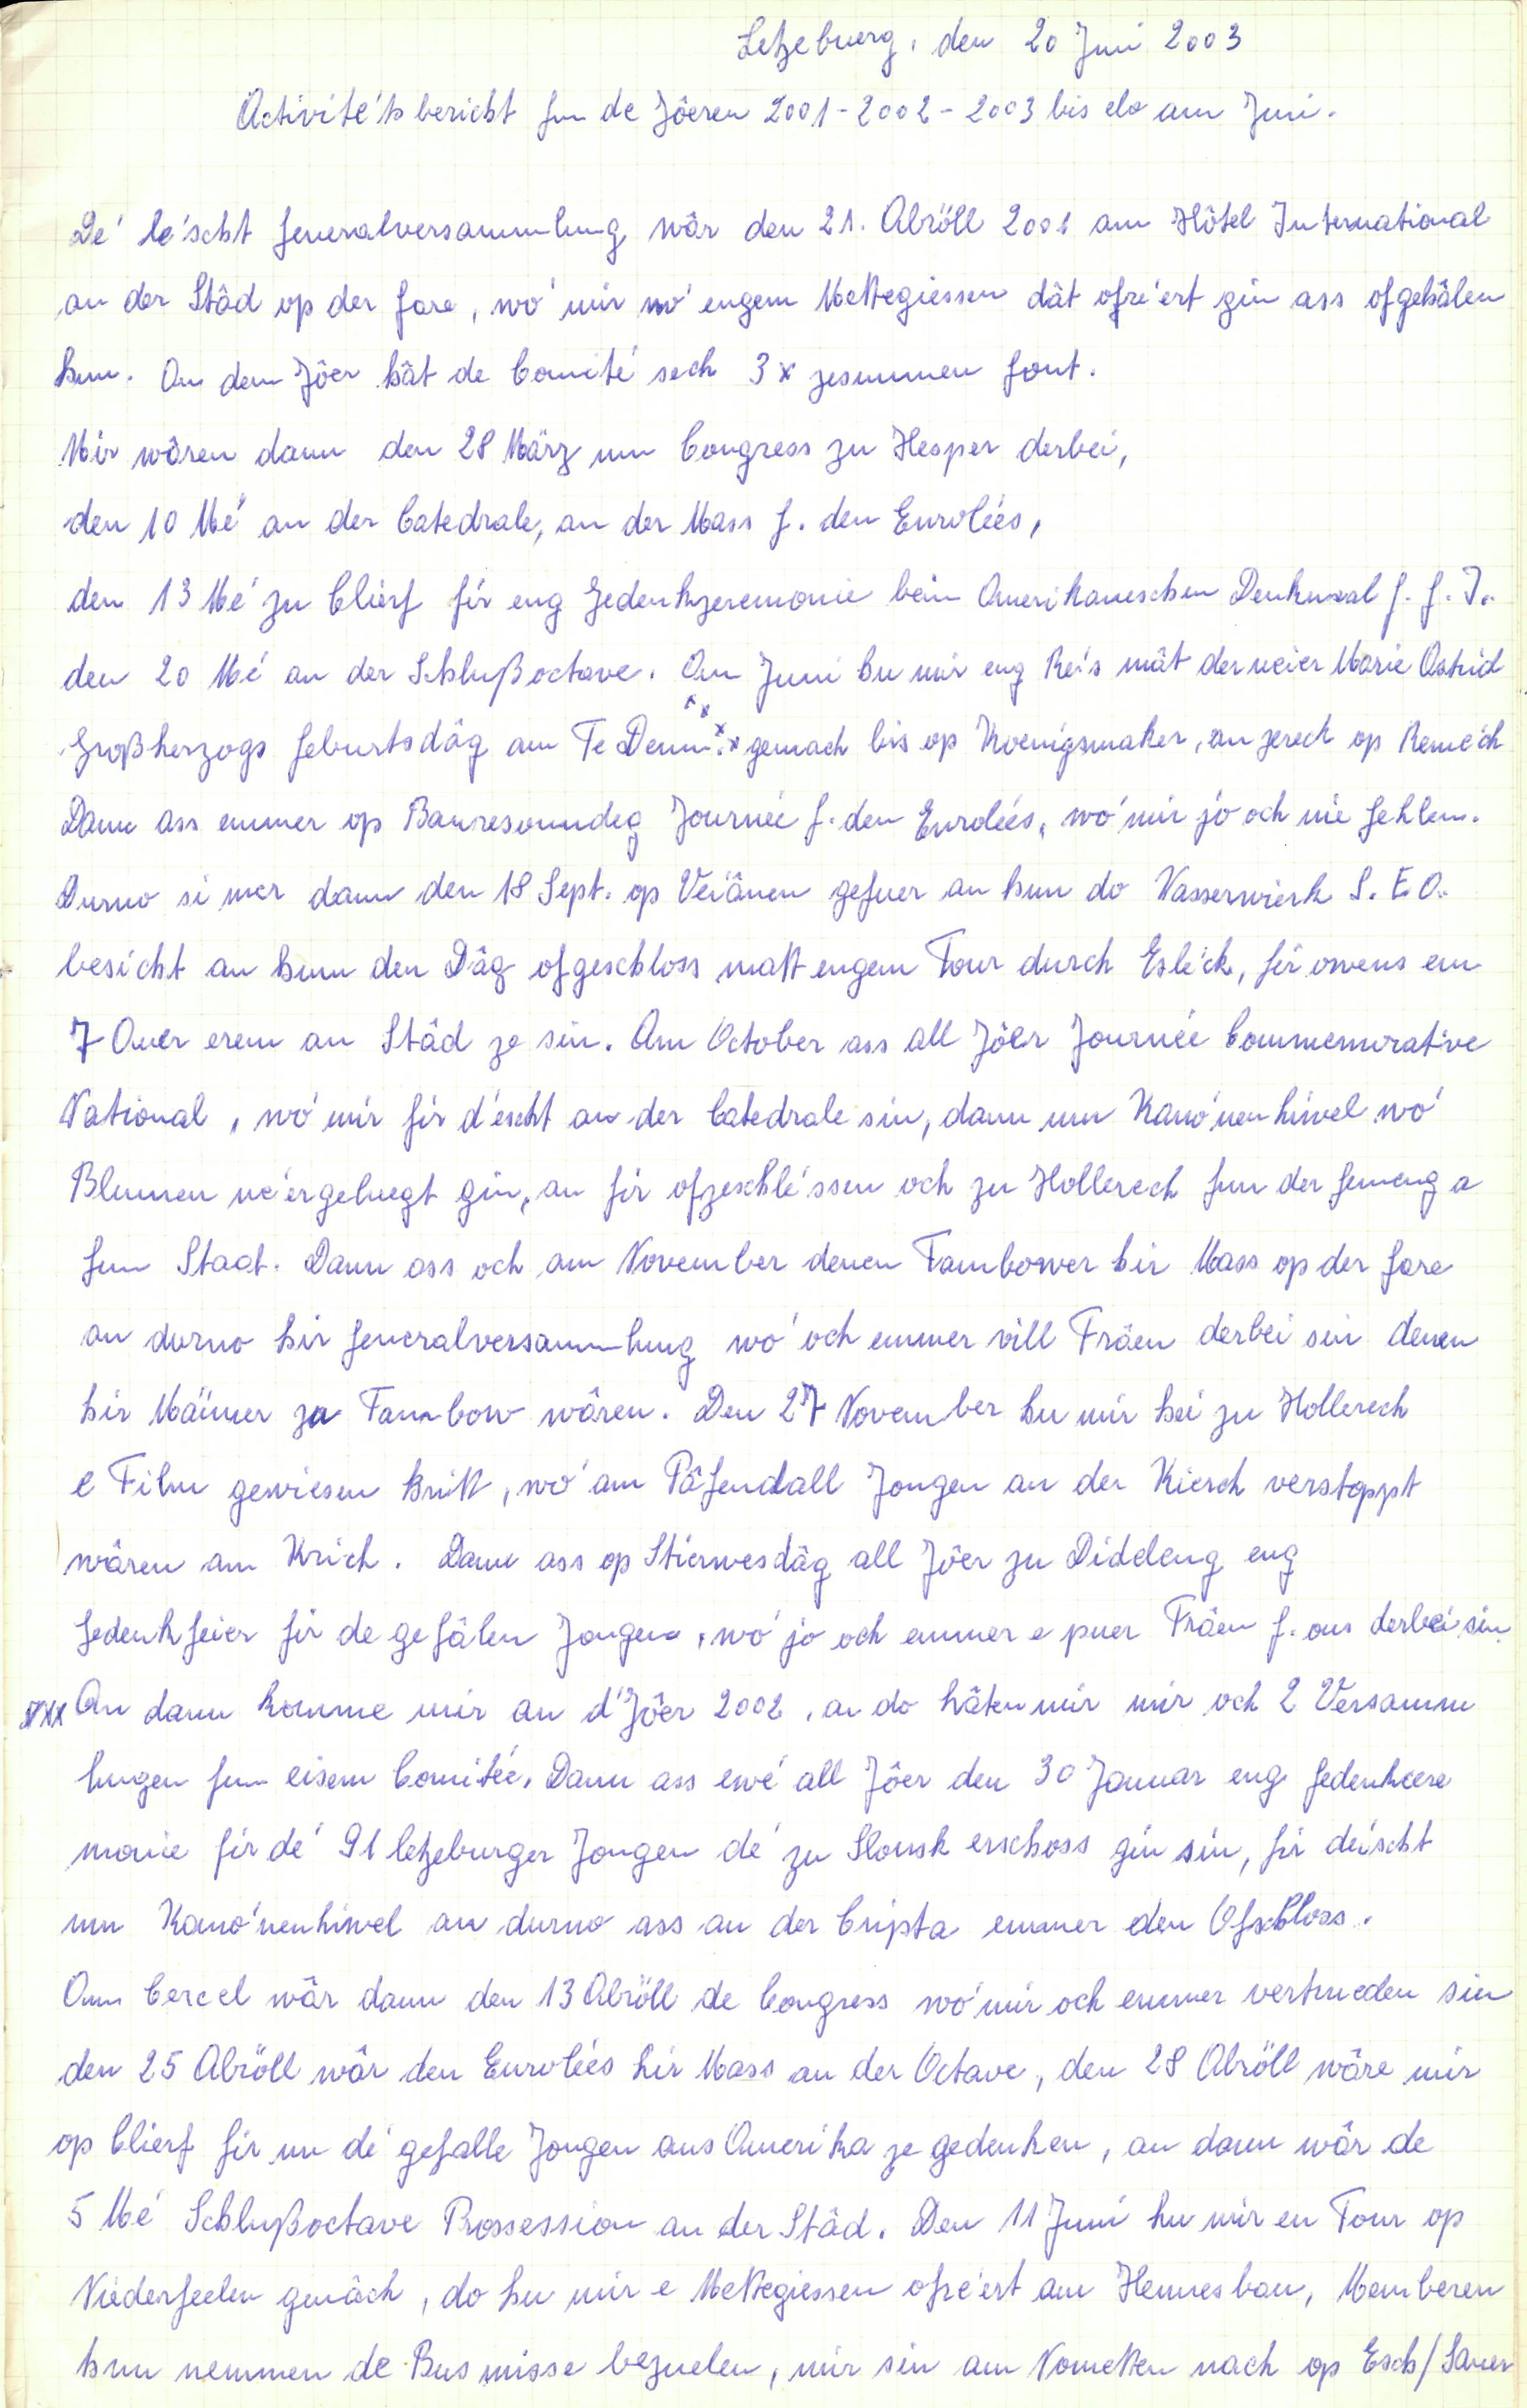 Letzeburg, den 20 Juni 2003
Activité'tsbericht fun de Jôeren 2001-2002-2003 bis elo am Juni.
De' le'scht Generalversammlung wâr den 21. Abröll 2001 am Hôtel International
an der Stâd op der Gare, wo' mir wo' engem Mettegiessen dât ofre'ert gin ass ofgehâlen
hun. An dem Jôer hât de Comité sech 3x zesummen font.
Mir wâren dann den 28 März um Congress zu Hesper derbei,
den 10 Mé an der Catedrale, an der Mass f. den Enrolées,
den 13 Mé zu Clierf fir eng Gedenkzeremonie beim Amerikaneschen Denkmal f. G. I.
den 20 Mé an der Schlußoctave. Am Juni hu mir eng Reis mât der neier Marie Astrid
Großherzogs Geburtsdâg am Te Deum. xx gemach bis op Koenigsmaker, an zereck op Reme'ch
Dann ass emmer op Bauresonndeg Journée f. den Enrolées, wo' mir jo och nie fehlen.
Durno si mer dann den 18 Sept. op Veiânen gefuer an hun do Wasserwierk S. E. O.
besicht an hunn den Dâg ofgeschloss matt engem Tour durch Esle'ck, fir owens em
7 Auer erem an Stâd ze sin. Am October ass all Jôer Journée Commemorative
National, wo' mir fir d'éscht an der Catedrale sin, dann um Kano'nenhiwel wo'
Blumen ne'ergeluegt gin, an fir ofzeschle'ssen och zu Hollerech fun der Gemeng a
fum Staat. Dann ass och am November denen Tambower hir Mass op der Gare
an durno hir Generalversammlung wo' och emmer vill Frâen derbei sin denen
hir Männer zu Tambow wâren. Den 27 November hu mir hei zu Hollerech
e Film gewiesen kritt, wo' am Pâfendall Jongen an der Kierch verstoppt
wâren am Krich. Dann ass op Stierwesdâg all Jôer zu Diddeleng eng
Gedenkfeier fir de gefâlen Jongen, wo' jo och emmer e puer Frâen f. ons derbei sin.
xxx An dann komme mir an d'Jôer 2002, an do hâten mir mir och 2 Versamm
lungen fun eisem Comitée. Dann ass ewé all Jôer den 30 Januar eng Gedenkcere
monie fir de' 91 letzeburger Jongen de' zu Slonsk erschoss gin sin, fir déischt
um Kano'nenhiwel an durno ass an der Cripta emmer den Ofschloss.
Am Cercel wâr dann den 13 Abröll de Congress wo' mir och emmer vertrueden sin
den 25 Abröll wâr den Enrolées hir Mass an der Octave, den 28 Abröll wâre mir
op Clierf fir un de' gefalle Jongen aus Amerika ze gedenken, an dann wâr de
5 Mé Schlußoctave Prossession an der Stâd. Den 11 Juni hu mir en Tour op
Niederfeelen gemâch, do hu mir e Mettegiessen ofre'ert am Hennesbau, Memberen
hun nemmen de Bus misse bezuelen, mir sin am Nometten nach op Esch/Sauer